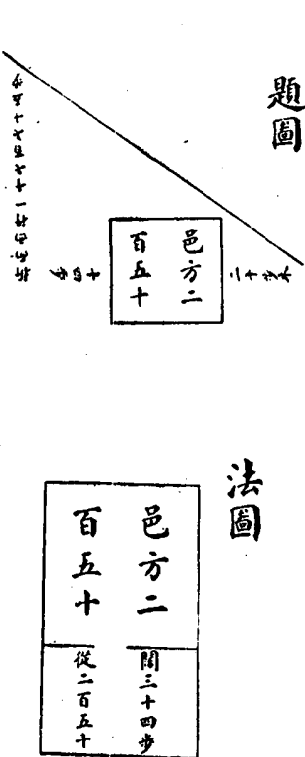 題圖
邑方二
百五十
二十步木
十四步
一千七百七十五步
法圖
邑方二
百五十
闊三十四步
從二百五十